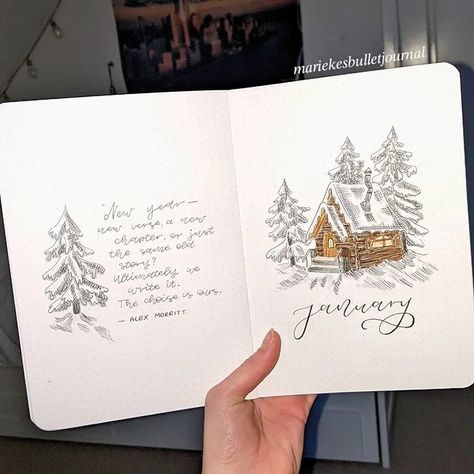 mariekesbulletjournal
"New year —
new verse, a new
chapter, or just
the same old
story?
Ultimately we
write it.
The choise is ours.
— ALEX MORRITT
january